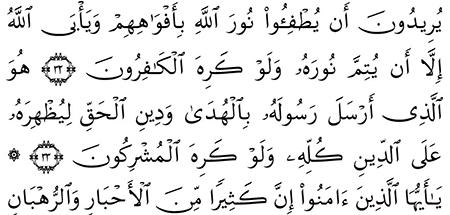 يُرِيدُونَ أَن يُطْفِـُٔوا۟ نُورَ ٱللَّهِ بِأَفْوَٰهِهِمْ وَيَأْبَى ٱللَّهُ
إِلَّآ أَن يُتِمَّ نُورَهُۥ وَلَوْ كَرِهَ ٱلْكَـٰفِرُونَ ۝٣٢ هُوَ
ٱلَّذِىٓ أَرْسَلَ رَسُولَهُۥ بِٱلْهُدَىٰ وَدِينِ ٱلْحَقِّ لِيُظْهِرَهُۥ
عَلَى ٱلدِّينِ كُلِّهِۦ وَلَوْ كَرِهَ ٱلْمُشْرِكُونَ ۝٣٣ ۞
يَـٰٓأَيُّهَا ٱلَّذِينَ ءَامَنُوٓا۟ إِنَّ كَثِيرًا مِّنَ ٱلْأَحْبَارِ وَٱلرُّهْبَانِ